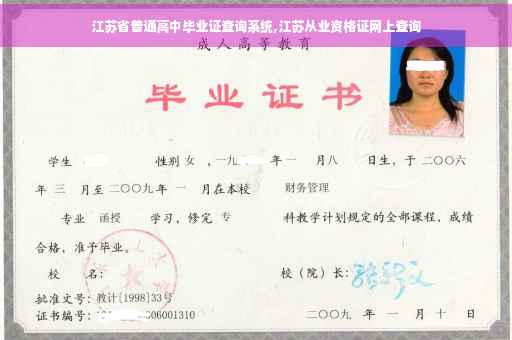 江苏省普通高中毕业证查询系统,江苏从业资格证网上查询
成人高等教育
毕业证书
学生 性别 女 ，一九 年 一 月 八 日生，于 二〇〇六
年 三 月至 二〇〇九 年 一 月在本校 财务管理
专业 函授 学习，修完 专 科教学计划规定的全部课程，成绩
合格，准予毕业。
校 名： 校（院）长：
批准文号：教计[1998]33号
证书编号： 06001310 二〇〇九 年 一 月 十 日